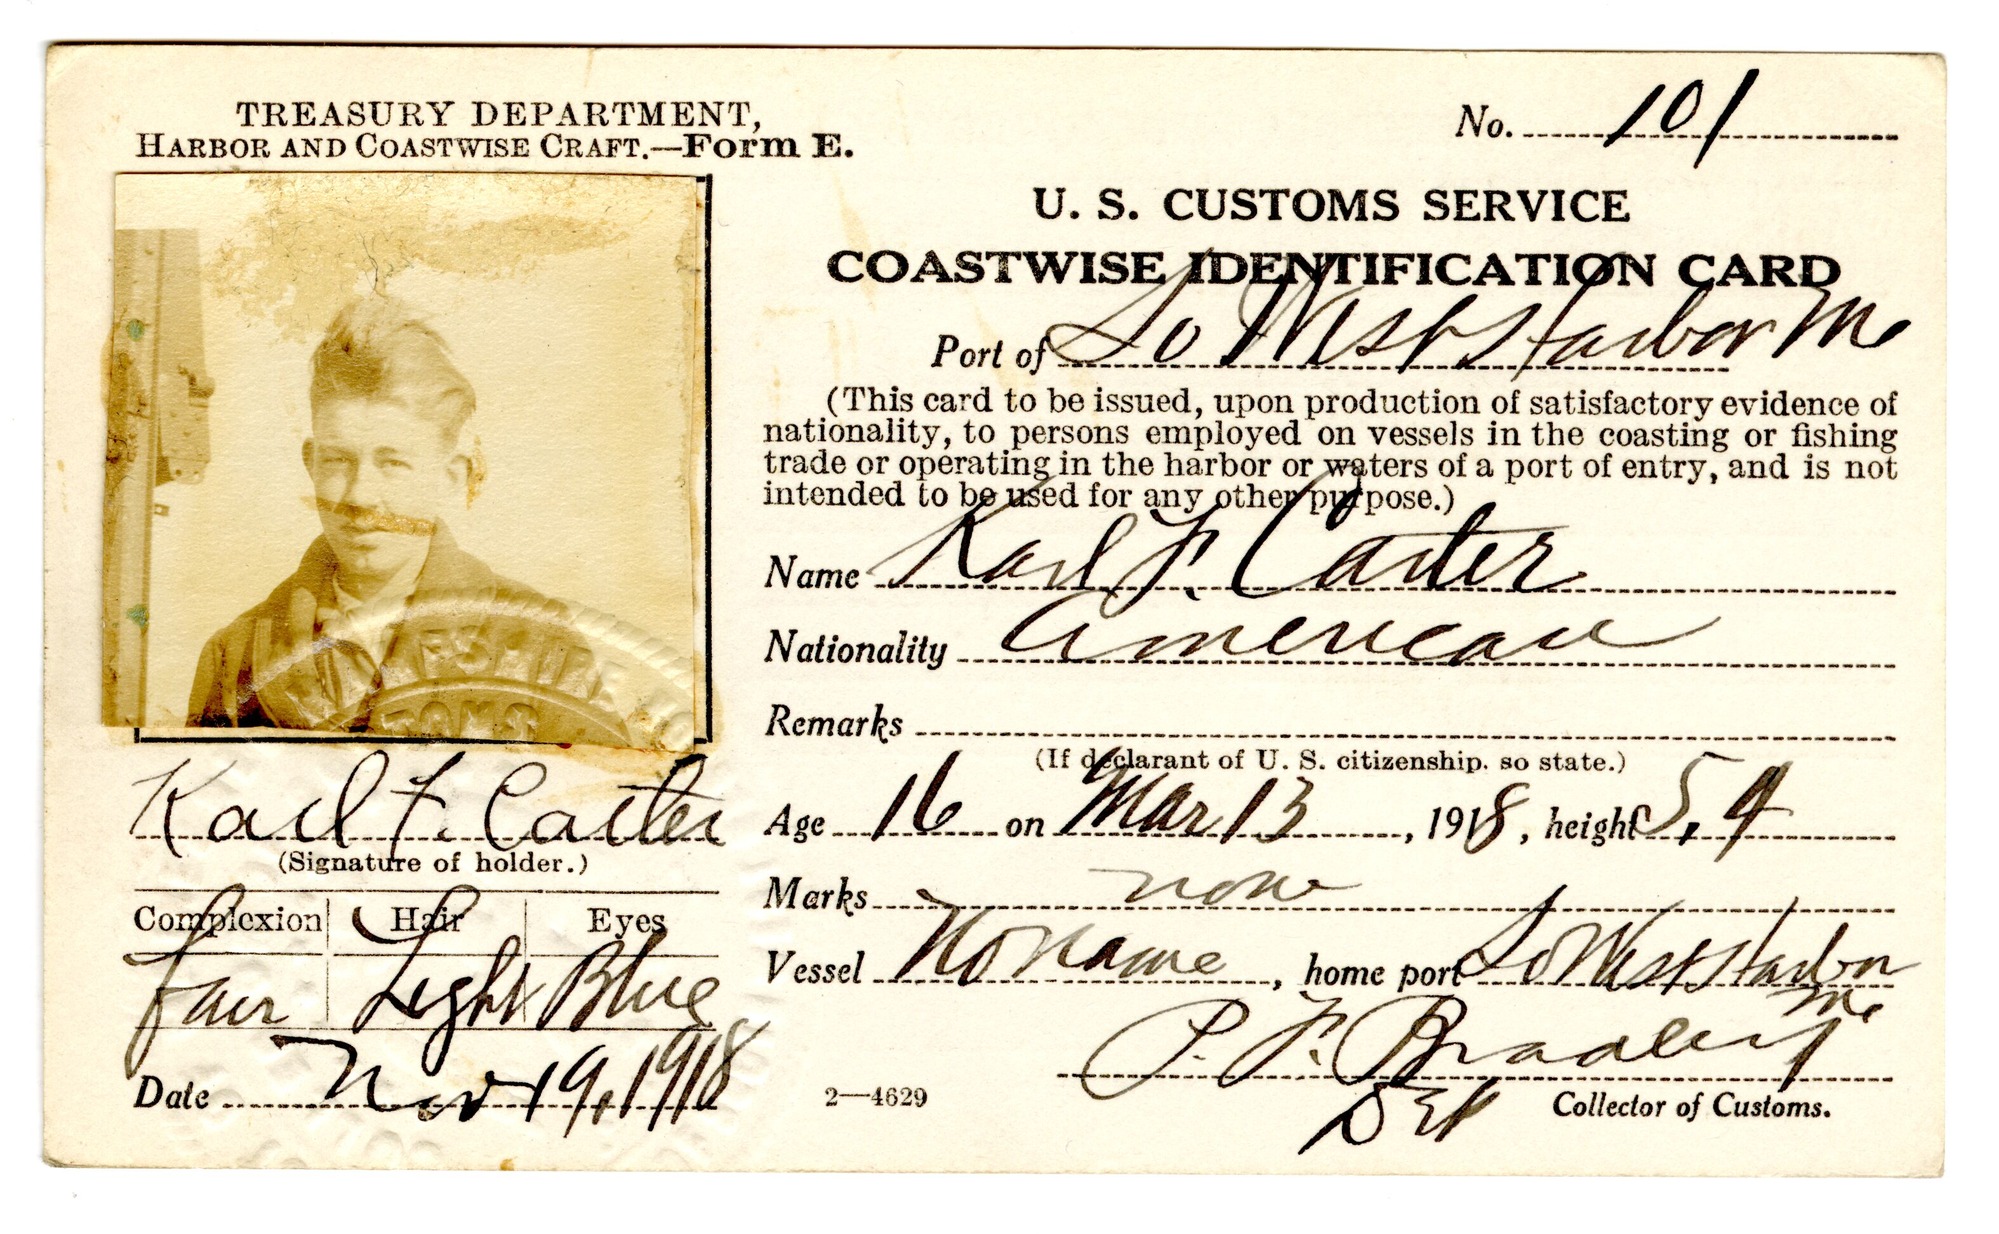 TREASURY DEPARTMENT,
HARBOR AND COASTWISE CRAFT.—Form E.
No. 101
U. S. CUSTOMS SERVICE
COASTWISE IDENTIFICATION CARD
Port of So West Harbor Me
(This card to be issued, upon production of satisfactory evidence of
nationality, to persons employed on vessels in the coasting or fishing
trade or operating in the harbor or waters of a port of entry, and is not
intended to be used for any other purpose.)
Name Karl F. Carter
Nationality American
Remarks
(If declarant of U. S. citizenship, so state.)
Age 16 on Mar 13, 1918, height 5,4
Marks none
Vessel No name, home port So West Harbor
Me
P. F. Bradley
Dep Collector of Customs.
Karl F. Carter
(Signature of holder.)
Complexion Hair Eyes
fair Light Blue
Date Nov 19, 1918
2—4629